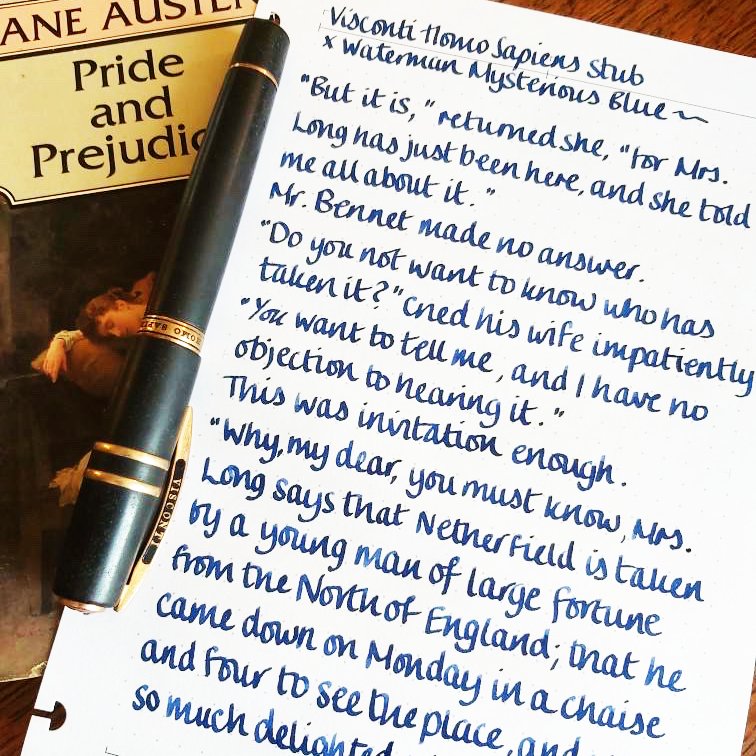 JANE AUSTEN
Pride
and
Prejudic
HOMO SAPIE
VISCONTI
Visconti Homo Sapiens Stub
x Waterman Mysterious Blue ~
"But it is," returned she, "for Mrs.
Long has just been here, and she told
me all about it."
Mr. Bennet made no answer.
"Do you not want to know who has
taken it?" cried his wife impatiently
"You want to tell me, and I have no
objection to hearing it."
This was invitation enough.
"Why, my dear, you must know, Mrs.
Long says that Netherfield is taken
by a young man of large fortune
from the North of England; that he
came down on Monday in a chaise
and four to see the place, and
so much delighted